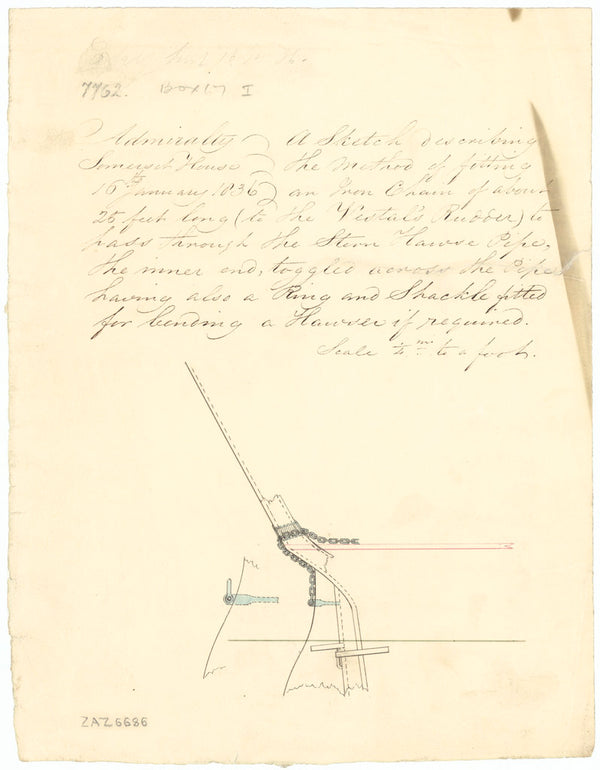 7762. Box 67 I
Admiralty ) A Sketch describing
Somerset House ) the Method of fitting
16th January 1836 ) an Iron Chain of about
25 feet long (to the Vestal's Rudder) to
pass through the Stern Hawse Pipe,
the inner end, toggled across the Pipe
having also a Ring and Shackle fitted
for bending a Hawser if required.
Scale ¼ in to a foot.
ZAZ6686